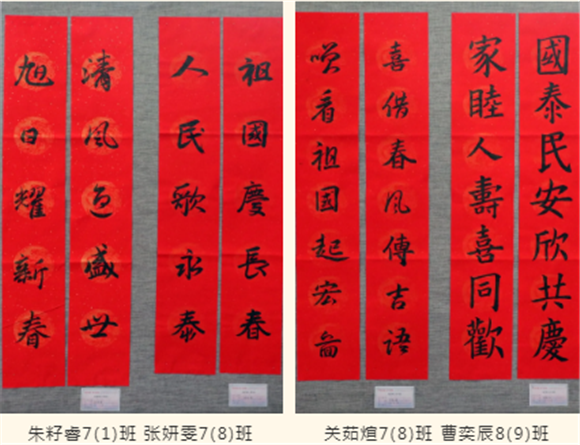 祖國慶長春
人民歌永泰
清風迎盛世
旭日耀新春
國泰民安欣共慶
家睦人壽喜同歡
喜借春風傳吉語
咲看祖國起宏圖
朱籽睿7(1)班 张妍雯7(8)班
关茹煊7(8)班 曹奕辰8(9)班